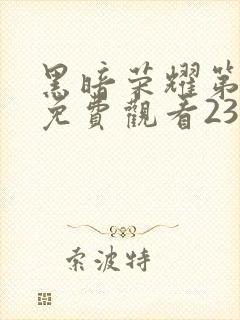 黑暗荣耀第
免費觀看23
索波特